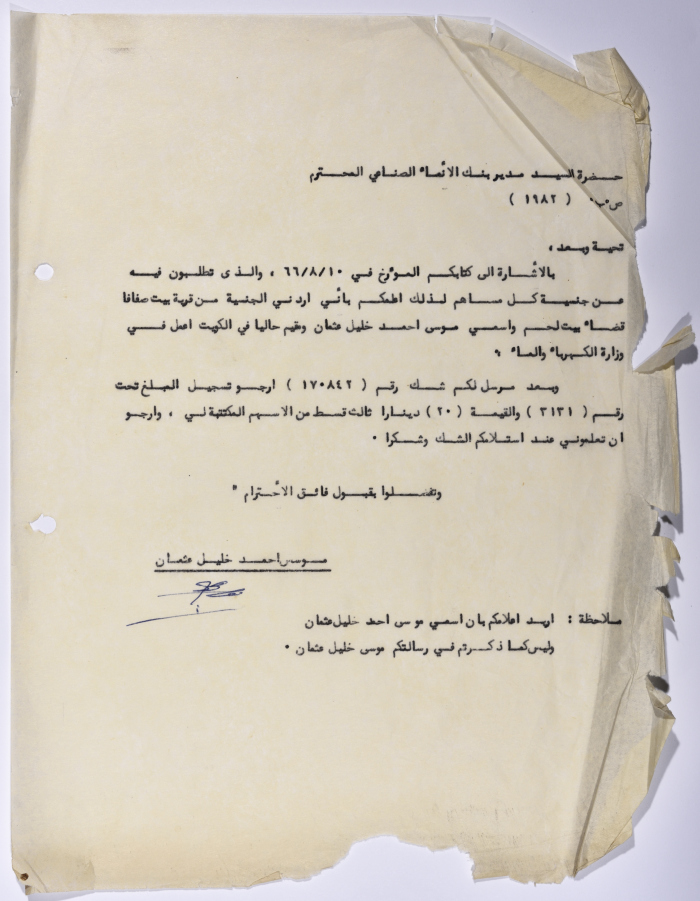 حضرة السيد مدير بنك الأنماء الصناعي المحترم
ص.ب. ( ١٩٨٢ )
تحية وبعد ،
بالأشارة الى كتابكم المؤرخ في ٦٦/٨/١٠ ، والذى تطلبون فيه
عن جنسية كل مساهم لذلك اعلمكم بأني اردني الجنسية من قرية بيت صفافا
قضاء بيت لحم واسمي موسى احمد خليل عثمان ومقيم حاليا في الكويت اعمل في
وزارة الكهرباء والماء .
وبعد مرسل لكم شك رقم ( ١٧٠٨٤٢ ) ارجو تسجيل المبلغ تحت
رقم ( ٣١٣١ ) والقيمة ( ٢٠ ) دينارا ثالث قسط من الاسهم المكتتبة لي ، وارجو
ان تعلموني عند استلامكم الشك وشكرا .
وتفضلوا بقبول فائق الأحترام "
موسى احمد خليل عثمان
ملاحظة : اريد اعلامكم بان اسمي موسى احمد خليل عثمان
وليس كما ذكرتم في رسالتكم موسى خليل عثمان .